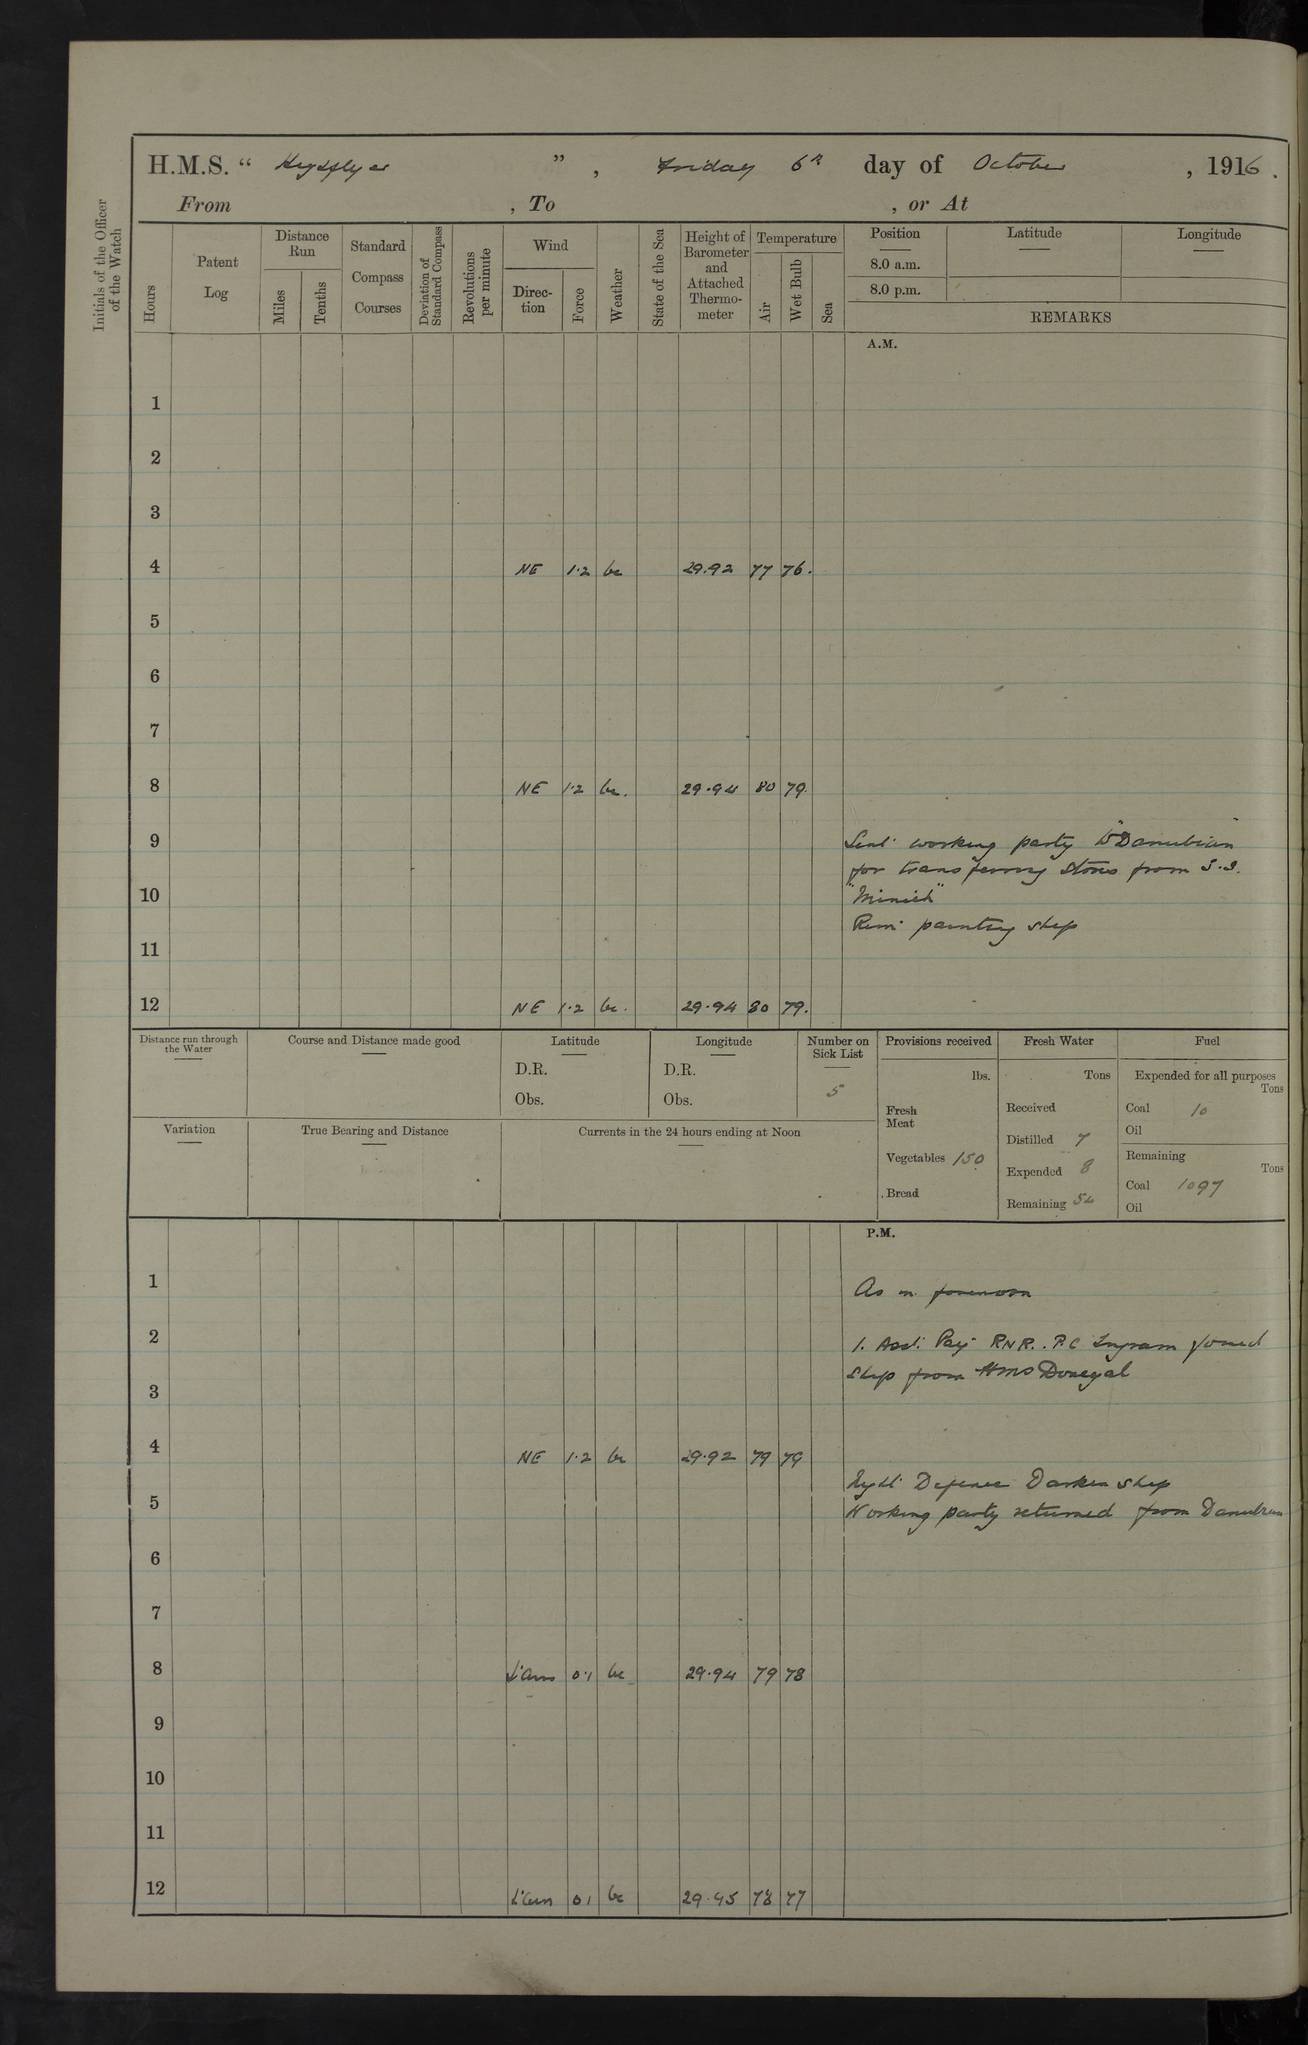 H.M.S. “ Highflyer ” , Friday 6th day of October , 1916.
From , To , or At
Initials of the Officer of the Watch
Hours
Patent Log
Distance Run
Miles
Tenths
Standard Compass Courses
Deviation of Standard Compass
Revolutions per minute
Wind
Direc-tion
Force
Weather
State of the Sea
Height of Barometer and Attached Thermo-meter
Temperature
Air
Wet Bulb
Sea
Position
8.0 a.m.
8.0 p.m.
Latitude
Longitude
REMARKS
A.M.
1
2
3
4 NE 1.2 bc 29.92 77 76.
5
6
7
8 NE 1.2 bc. 29.94 80 79.
9 Sent working party to "Danubian"
for transferring stores from S.S.
10
Rem: painting ship
11
12 NE 1.2 bc. 29.94 80 79.
Distance run through the Water
Course and Distance made good
Latitude
D.R.
Obs.
Longitude
D.R.
Obs.
Number on Sick List
5
Provisions received
lbs.
Fresh Meat
Vegetables 150
Bread
Fresh Water
Tons
Received
Distilled 7
Expended 8
Remaining 54
Fuel
Expended for all purposes
Tons
Coal 10
Oil
Remaining
Tons
Coal 1097
Oil
Variation
True Bearing and Distance
Currents in the 24 hours ending at Noon
P.M.
1 As in forenoon
2 1. Asst: Pay: RNR. P.C Ingram joined
ship from HMS Donegal
3
4 NE 1.2 bc 29.92 79 79
Night Defence Darken Ship
5 Working party returned from Danubian
6
7
8 L'airs 0.1 bc 29.94 79 78
9
10
11
12 L'airs 0.1 bc 29.95 78 77